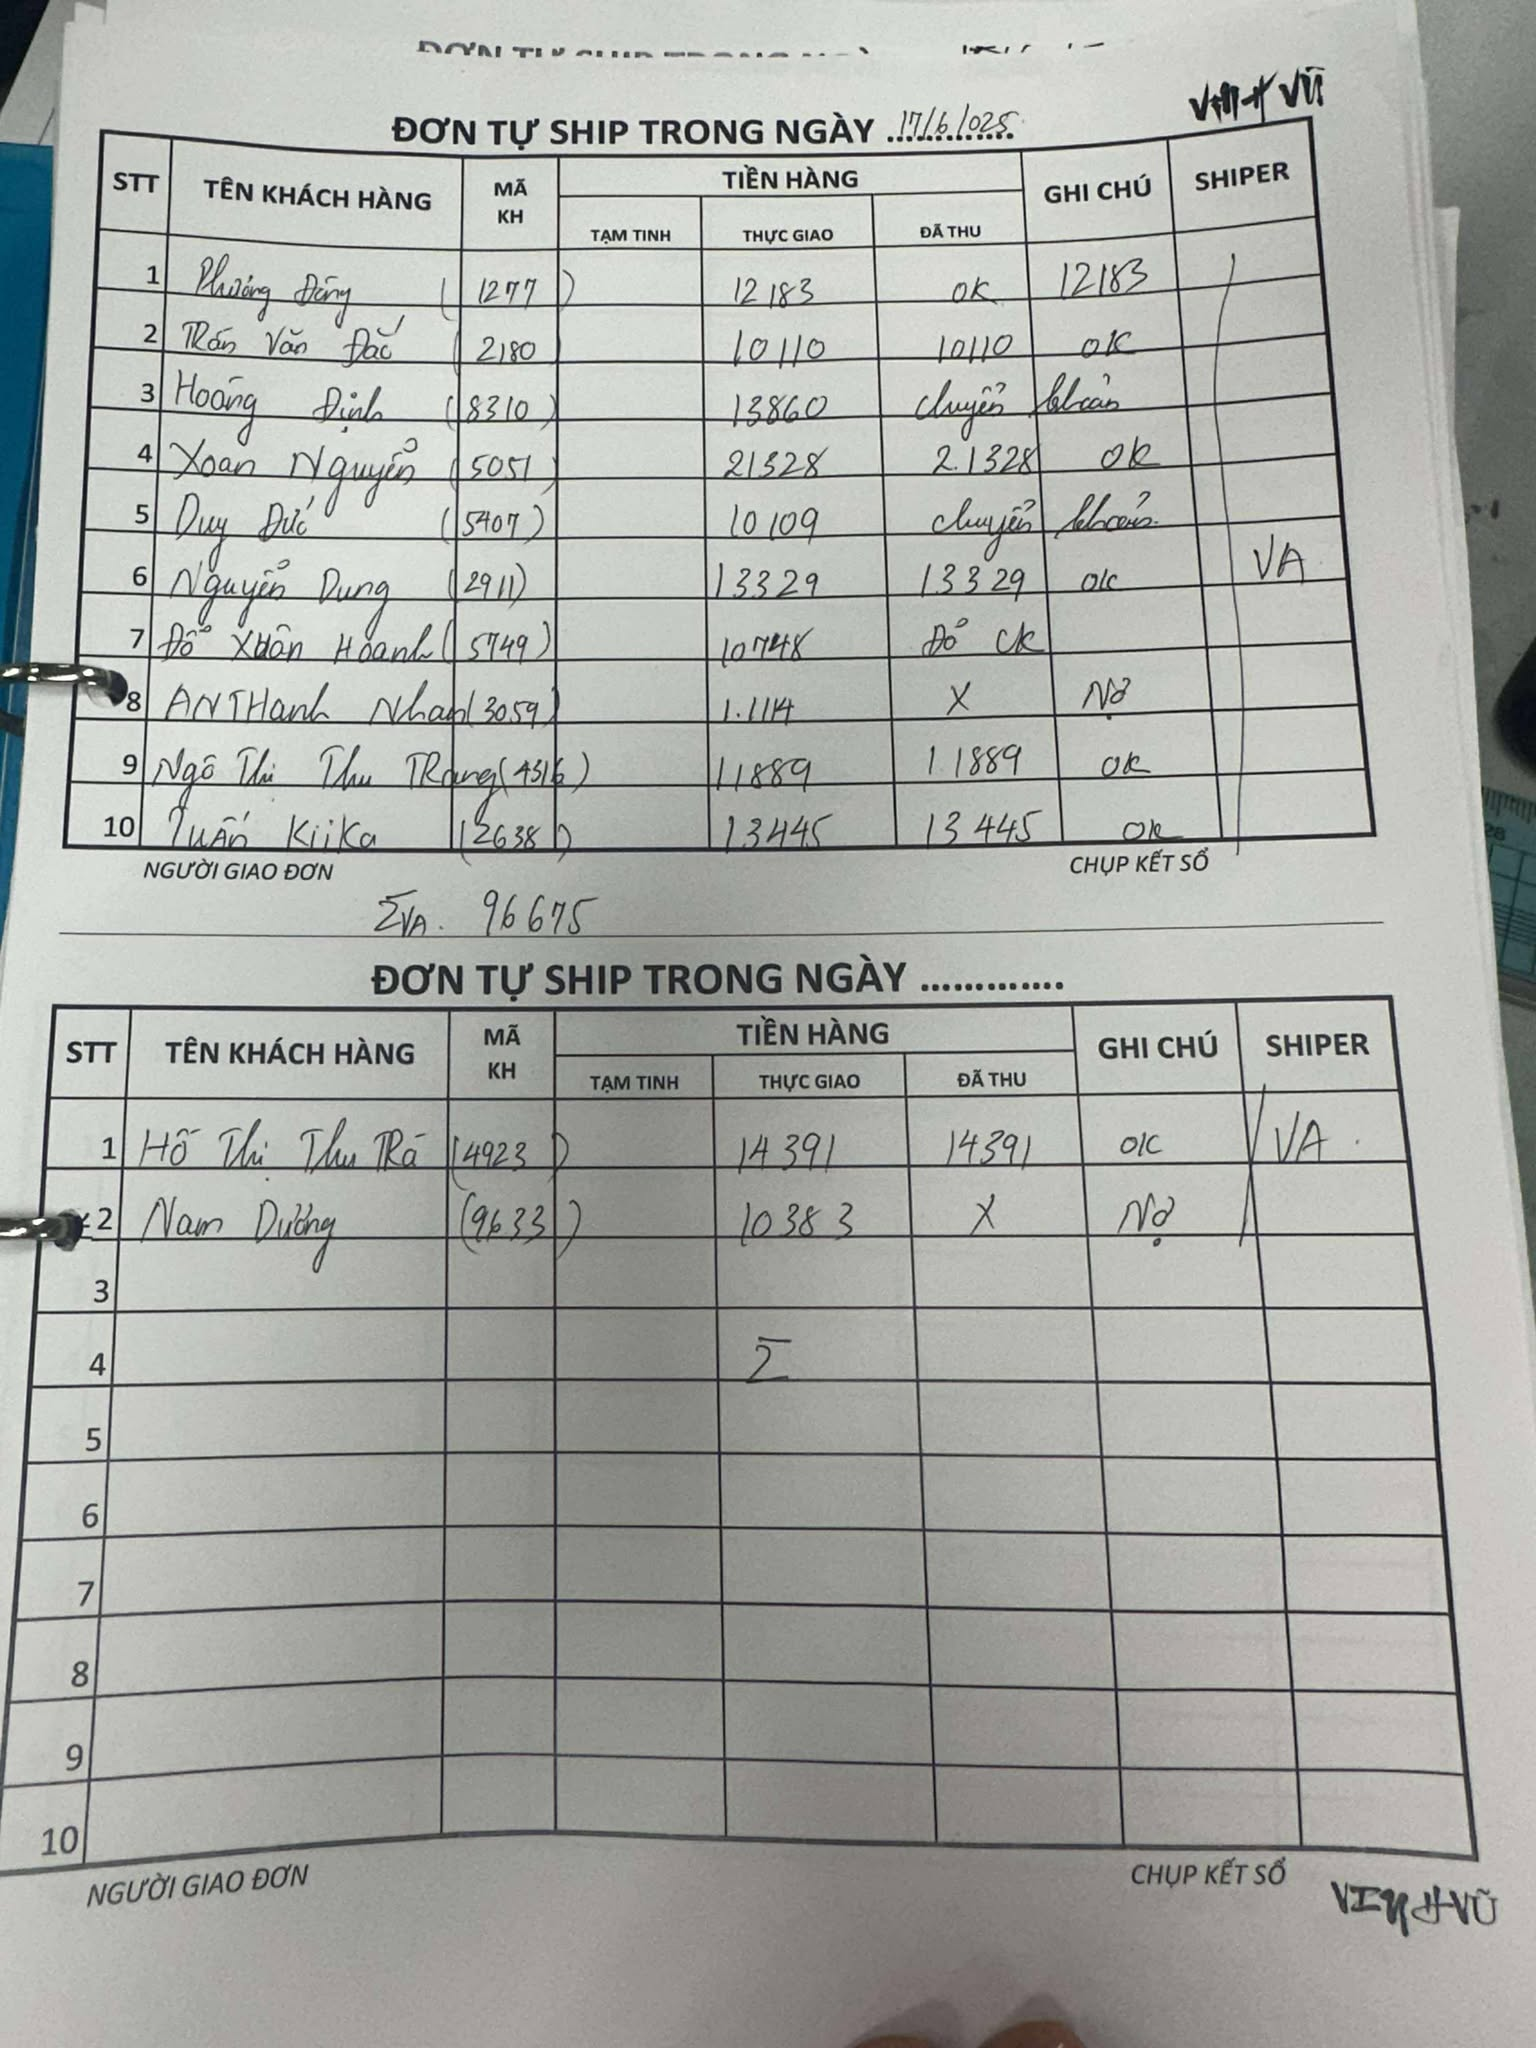 VINH VŨ
ĐƠN TỰ SHIP TRONG NGÀY 17/6/025
STT TÊN KHÁCH HÀNG MÃ KH TIỀN HÀNG GHI CHÚ SHIPER
TẠM TINH THỰC GIAO ĐÃ THU
1 Phương Đông (1277) 12183 OK 12183
2 Trần Văn Đắc (2180) 10110 10110 OK
3 Hoàng Định (8310) 13860 chuyển khoản
4 Xoan Nguyễn (5051) 21328 2.1328 OK
5 Duy Đức (5407) 10109 chuyển khoản
6 Nguyễn Dung (2911) 13329 13329 OK VA
7 Đỗ Xuân Hoanh (5749) 10748 Đỏ CK
8 AN THanh Nhan (3059) 1.1114 X Nợ
9 Ngô Thị Thu TRang (4516) 11889 1.1889 OK
10 Tuấn KiiKa (2638) 13445 13445 OK
NGƯỜI GIAO ĐƠN CHỤP KẾT SỔ
ΣVA. 96675
ĐƠN TỰ SHIP TRONG NGÀY .............
STT TÊN KHÁCH HÀNG MÃ KH TIỀN HÀNG GHI CHÚ SHIPER
TẠM TINH THỰC GIAO ĐÃ THU
1 Hồ Thị Thu TRà (4923) 14391 14391 OK VA.
2 Nam Dương (9633) 10383 X Nợ
3
4 Σ
5
6
7
8
9
10
NGƯỜI GIAO ĐƠN CHỤP KẾT SỔ
VINH VŨ